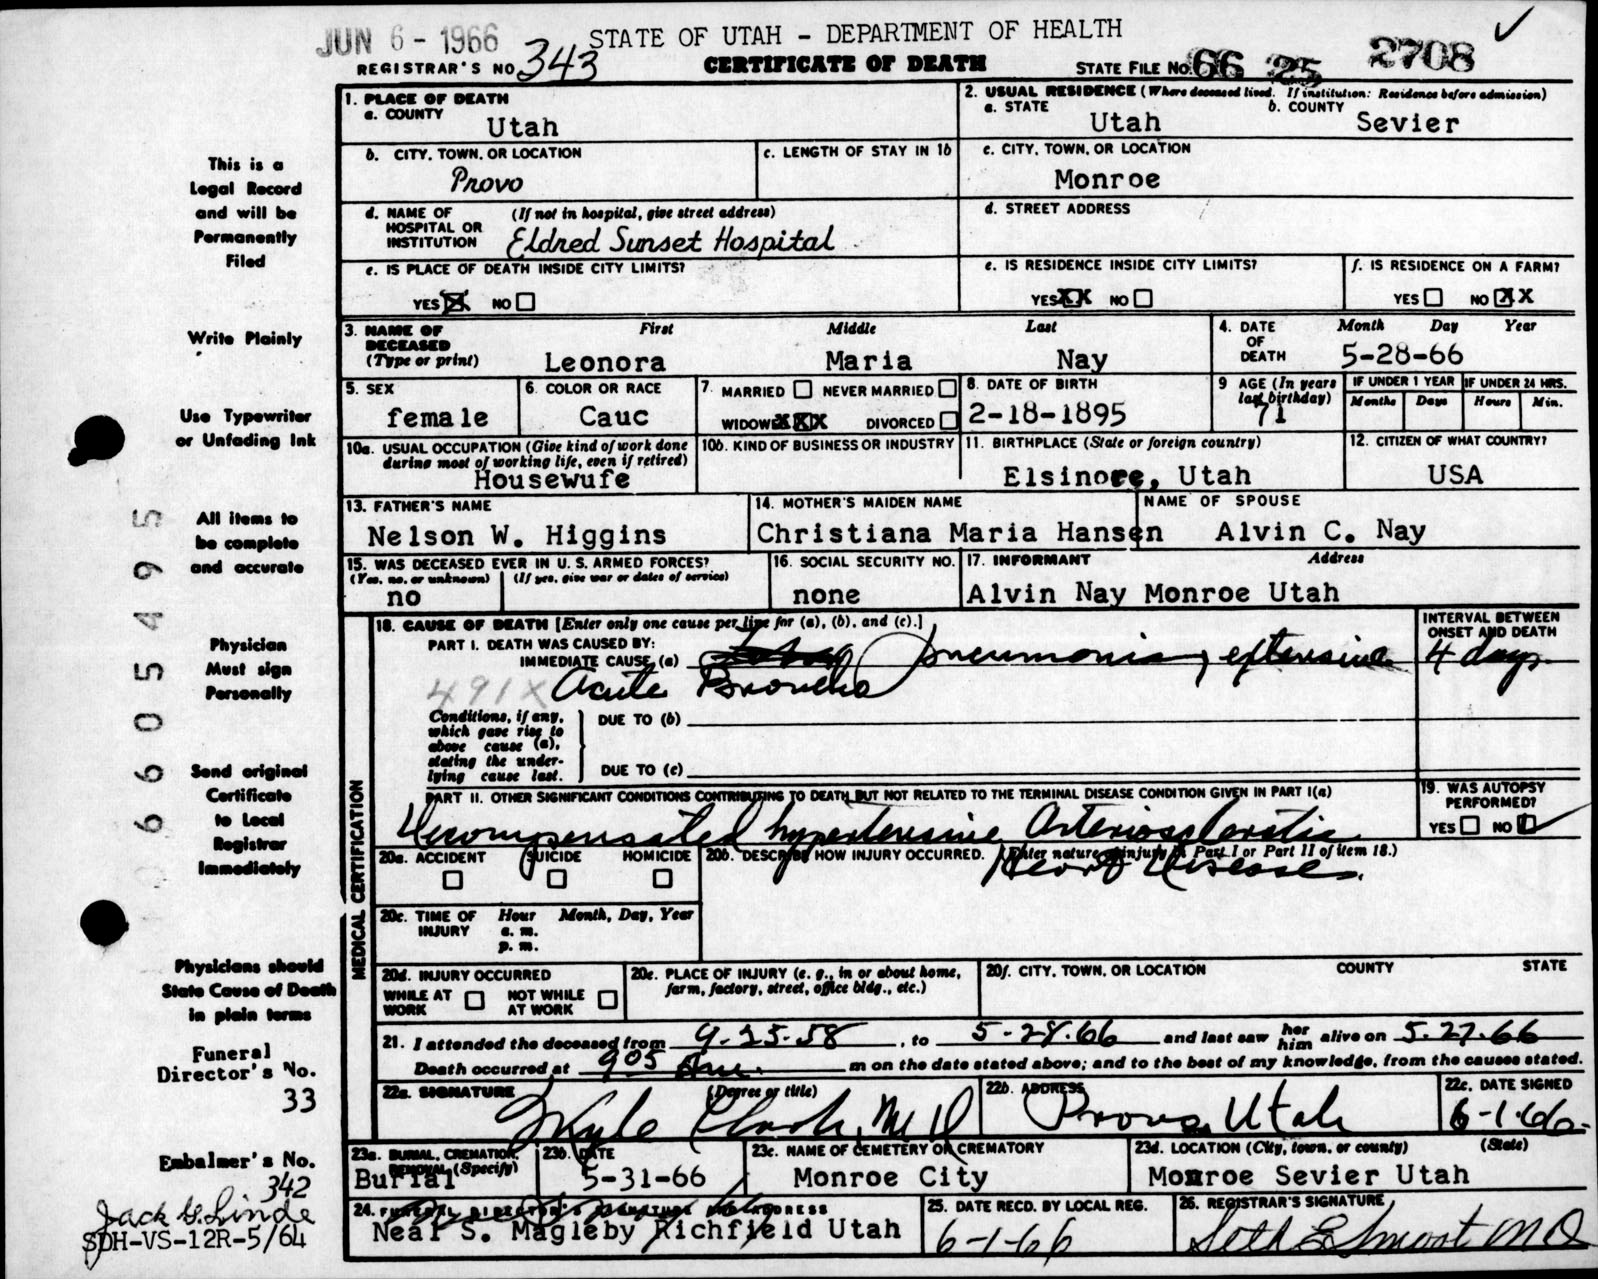 JUN 6 - 1966
STATE OF UTAH - DEPARTMENT OF HEALTH
REGISTRAR'S NO. 343
CERTIFICATE OF DEATH
STATE FILE NO. 66 25 2708
1. PLACE OF DEATH
a. COUNTY
Utah
2. USUAL RESIDENCE (Where deceased lived. If institution: Residence before admission)
a. STATE Utah b. COUNTY Sevier
b. CITY, TOWN, OR LOCATION
Provo
c. LENGTH OF STAY IN 1b
c. CITY, TOWN, OR LOCATION
Monroe
d. NAME OF HOSPITAL OR INSTITUTION (If not in hospital, give street address)
Eldred Sunset Hospital
d. STREET ADDRESS
e. IS PLACE OF DEATH INSIDE CITY LIMITS?
YES X NO
e. IS RESIDENCE INSIDE CITY LIMITS?
YES XX NO
f. IS RESIDENCE ON A FARM?
YES NO XX
3. NAME OF DECEASED (Type or print)
First Middle Last
Leonora Maria Nay
4. DATE OF DEATH Month Day Year
5-28-66
5. SEX
female
6. COLOR OR RACE
Cauc
7. MARRIED NEVER MARRIED
WIDOWED XXX DIVORCED
8. DATE OF BIRTH
2-18-1895
9 AGE (In years last birthday)
71
IF UNDER 1 YEAR
Months Days
IF UNDER 24 HRS.
Hours Min.
10a. USUAL OCCUPATION (Give kind of work done during most of working life, even if retired)
Housewufe
10b. KIND OF BUSINESS OR INDUSTRY
11. BIRTHPLACE (State or foreign country)
Elsinore, Utah
12. CITIZEN OF WHAT COUNTRY?
USA
13. FATHER'S NAME
Nelson W. Higgins
14. MOTHER'S MAIDEN NAME
Christiana Maria Hansen
NAME OF SPOUSE
Alvin C. Nay
15. WAS DECEASED EVER IN U. S. ARMED FORCES?
(Yes, no, or unknown) (If yes, give war or dates of service)
no
16. SOCIAL SECURITY NO.
none
17. INFORMANT Address
Alvin Nay Monroe Utah
MEDICAL CERTIFICATION
18. CAUSE OF DEATH [Enter only one cause per line for (a), (b), and (c).]
PART I. DEATH WAS CAUSED BY:
IMMEDIATE CAUSE (a) pneumonia, extensive
491X Acute Broncho
INTERVAL BETWEEN ONSET AND DEATH
4 days
Conditions, if any, which gave rise to above cause (a), stating the underlying cause last.
DUE TO (b)
DUE TO (c)
PART II. OTHER SIGNIFICANT CONDITIONS CONTRIBUTING TO DEATH BUT NOT RELATED TO THE TERMINAL DISEASE CONDITION GIVEN IN PART I(a)
Decompensated hypertensive Arteriosclerotic
Heart Disease.
19. WAS AUTOPSY PERFORMED?
YES NO
20a. ACCIDENT SUICIDE HOMICIDE
20b. DESCRIBE HOW INJURY OCCURRED. (Enter nature of injury in Part I or Part II of item 18.)
20c. TIME OF INJURY Hour Month, Day, Year
a. m.
p. m.
20d. INJURY OCCURRED
WHILE AT WORK NOT WHILE AT WORK
20e. PLACE OF INJURY (e. g., in or about home, farm, factory, street, office bldg., etc.)
20f. CITY, TOWN, OR LOCATION COUNTY STATE
21. I attended the deceased from 9-25-58, to 5-28-66 and last saw her him alive on 5-27-66
Death occurred at 905 Am. m on the date stated above; and to the best of my knowledge, from the causes stated.
22a. SIGNATURE (Degree or title)
M D
22b. ADDRESS
Provo, Utah
22c. DATE SIGNED
6-1-66
23a. BURIAL, CREMATION, REMOVAL (Specify)
Burial
23b. DATE
5-31-66
23c. NAME OF CEMETERY OR CREMATORY
Monroe City
23d. LOCATION (City, town, or county) (State)
Monroe Sevier Utah
24. FUNERAL DIRECTOR'S SIGNATURE ADDRESS
Neal S. Magleby Richfield Utah
25. DATE RECD. BY LOCAL REG.
6-1-66
26. REGISTRAR'S SIGNATURE
This is a
Legal Record
and will be
Permanently
Filed
Write Plainly
Use Typewriter
or Unfading Ink
All items to
be complete
and accurate
Physician
Must sign
Personally
Send original
Certificate
to Local
Registrar
Immediately
Physicians should
State Cause of Death
in plain terms
Funeral
Director's No.
33
Embalmer's No.
342
SDH-VS-12R-5/64
06605495